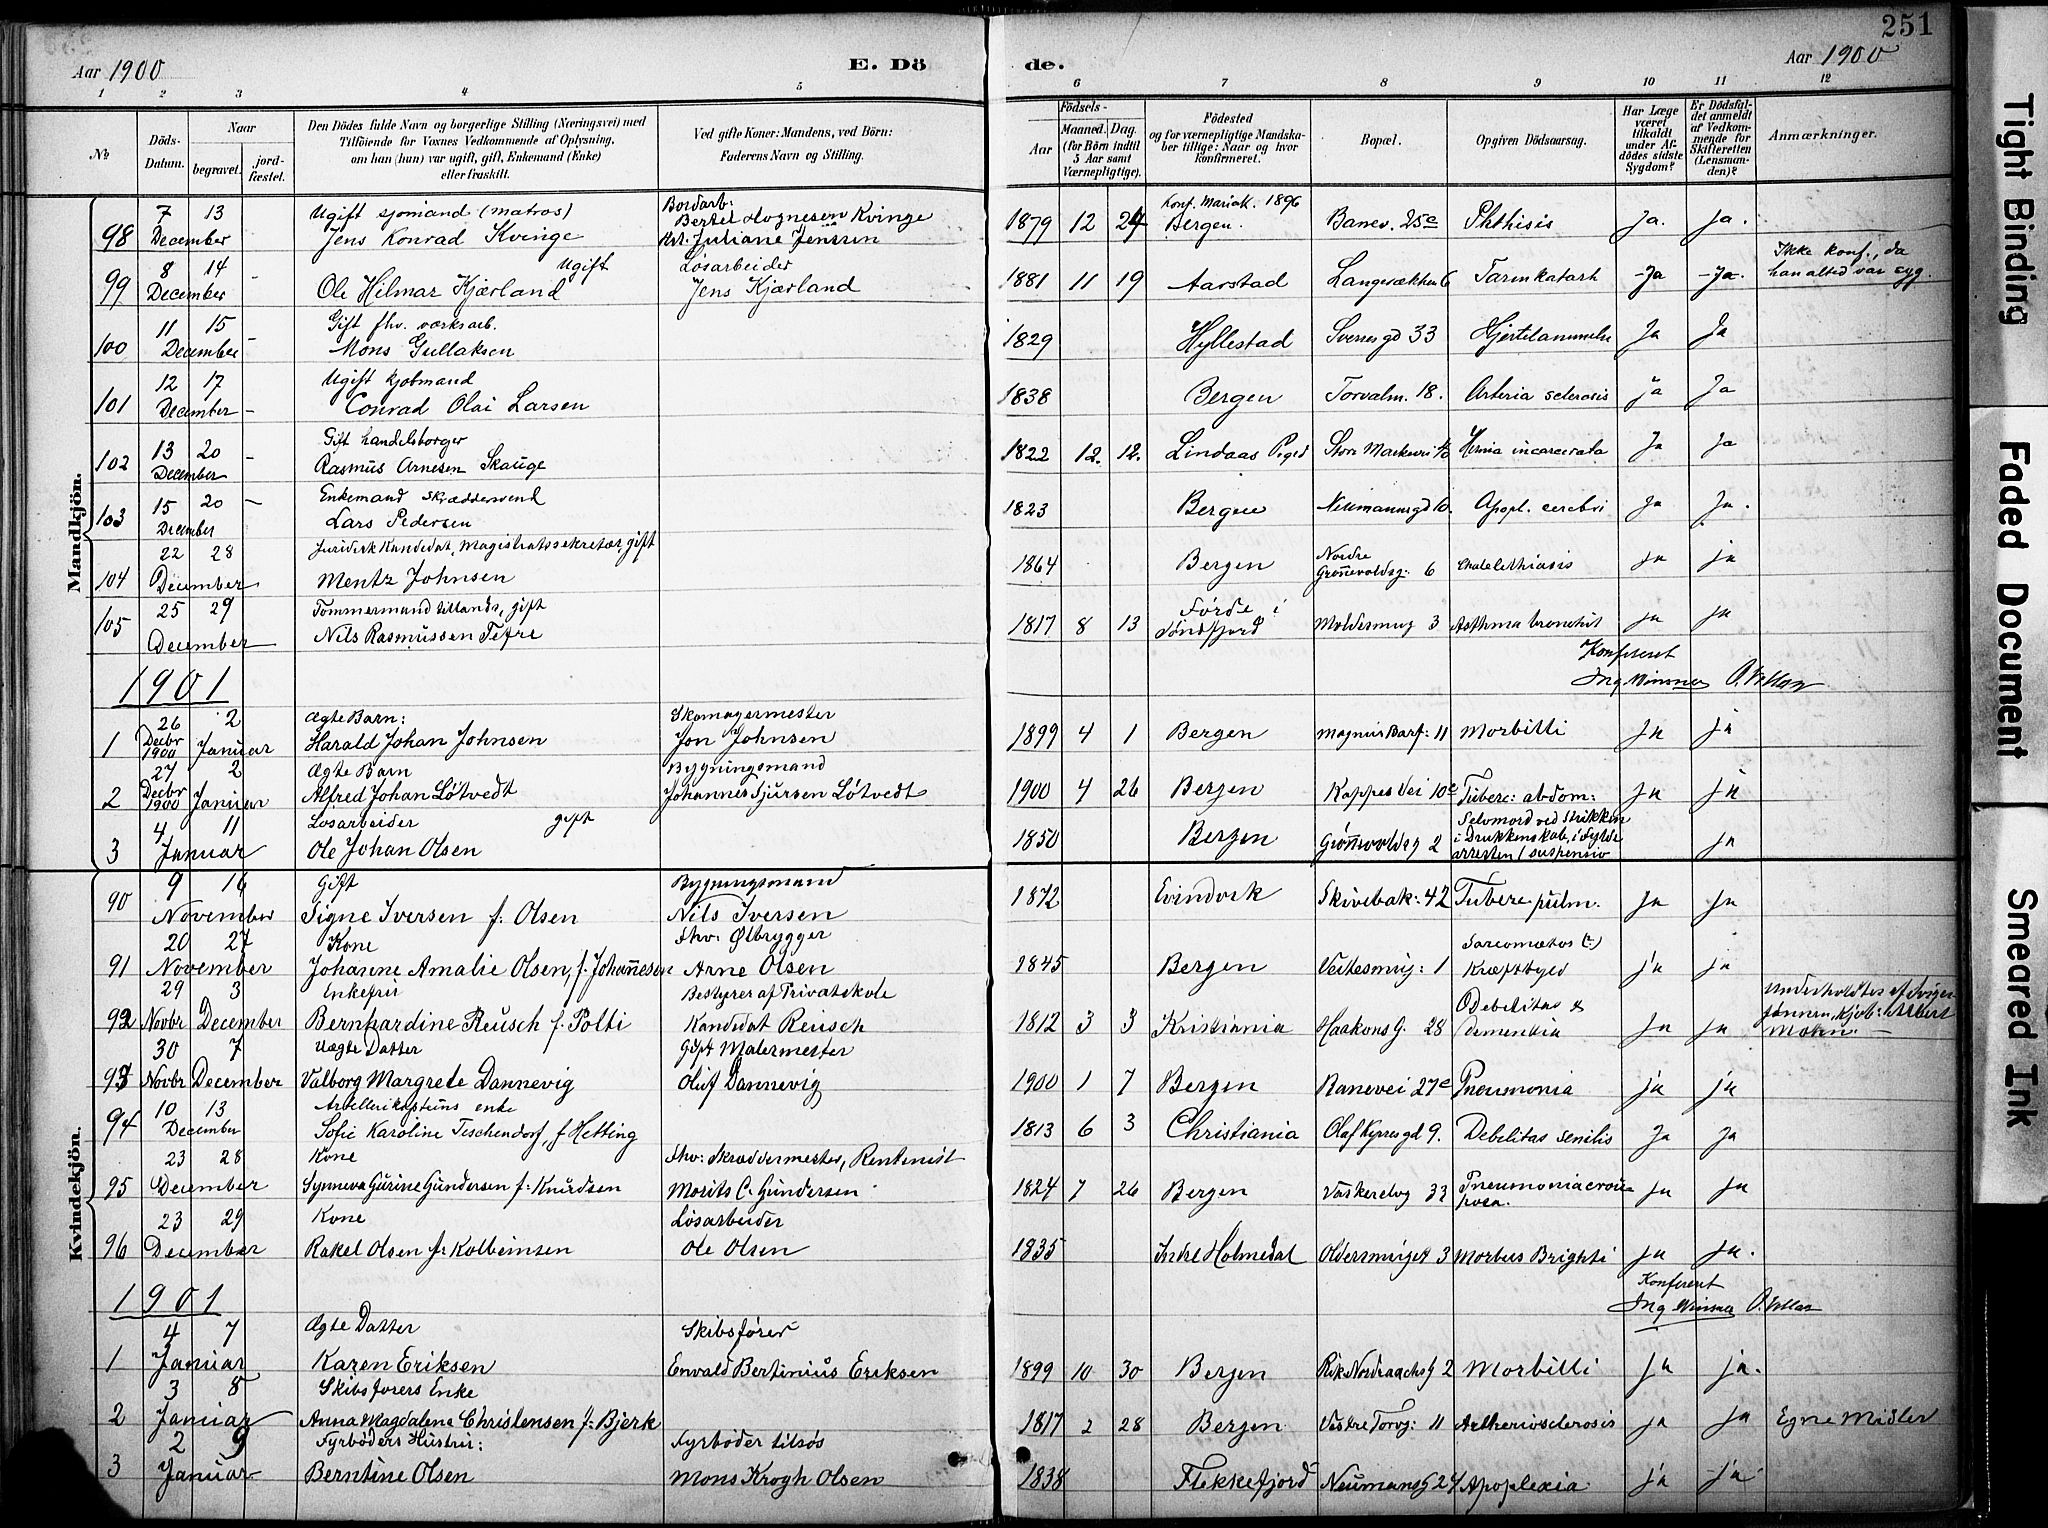 251
Aar 1900
E. Dö
de.
Aar 1900
1 2 3 4 5 6 7 8 9 10 11 12
No
Döds-Datum.
Naar
begravet.
jord-fæstet.
Den Dödes fulde Navn og borgerlige Stilling (Næringsvei) med
Tilföiende for Voxnes Vedkommende af Oplysning,
om han (hun) var ugift, gift, Enkemand (Enke)
eller fraskilt.
Ved gifte Koner: Mandens, ved Börn:
Faderens Navn og Stilling.
Födsels-
Aar
Maaned. Dag.
(for Börn indtil
5 Aar samt
Værnepligtige).
Födested
og for værnepligtige Mandska-
ber tillige: Naar og hvor
konfirmeret.
Bopæl.
Opgiven Dödsaarsag.
Har Læge
været
tilkaldt
under Af-
dödes sidste
Sygdom?
Er Dödsfal-
det anmeldt
af Vedkom-
mende for
Skifteretten
(Lensman-
den)?
Anmærkninger.
Mandkjön.
7 13 Ugift sjømand (matros) Bordarb: Konf. Mariak. 1896
98 December Jens Konrad Kvinge Bertel Hognesen Kvinge
Juliane Jenssen 1879 12 24 Bergen. Banev. 25c Phthisis Ja. ja.
8 14 - Ugift Løsarbeider Ikke konf., da
99 December Ole Hilmar Kjærland Jens Kjærland 1881 11 19 Aarstad 6 Tarmkatarh - Ja - Ja. han altid var syg.
11 15 - Gift fhv. værksarb.
100 December Mons Gullaksen 1829 Hyllestad Sverresgd 33 Ja Ja
12 17 Ugift kjøbmand
101 December - Conrad Olai Larsen 1838 Bergen Torvalm. 18. Arteria sclerosis ja Ja
13 20 - Gift handelsborger
102 December Rasmus Arnesen Skauge 1822 12. 12. Lindaas Pgd Store Hernia incarcerata Ja Ja
15 20 - Enkemand Skræddersvend
103 December Lars Pedersen 1823 Bergen Neumannsgd 10. Apopl. cerebri Ja Ja.
22 28 Juridisk Kandidat, Magistratssekretær, gift
104 December Mentz Johnsen 1864 Bergen Nordre 6 ja ja
25 29 Tømmermand tillands, gift
105 December Nils Rasmussen Tefre 1817 8 13 Førde i Søndfjord Moldesmug 3 Asthma bronchit ja ja
Konfereret
1901
26 2 Ægte Barn: Skomagermester
1 Decbr 1900 Januar Harald Johan Johnsen Jon Johnsen 1899 4 1 Bergen Magnus Barf: 11 Morbilli Ja ja
27 2 Ægte Barn Bygningsmand
2 Decbr 1900 Januar Alfred Johan Løtvedt Johannes Løtvedt 1900 4 26 Bergen Kappes Vei 10c Tuberc: abdom: Ja ja
4 11 Løsarbeider gift
3 Januar Ole Johan Olsen 1850 Bergen 2 Selvmord ved
i Drukkenskab, i
arresten / suspensio ja
Kvindekjön.
9 16 Gift Bygningsmand
90 November Signe Iversen f: Olsen Nils Iversen 1872 Evindvik Skivebak: 42 Tuberc pulm. Ja Ja
20 27 Kone Fhv: Ølbrygger Sarcomatos (?)
91 November Johanne Amalie Olsen, f. Johannesen Arne Olsen 1845 Bergen Veitesmug: 1 ja ja
29 3 Enkefru Bestyrer af Privatskole
92 Novbr December Bernhardine Reusch f. Polti Kandidat Reusch 1812 3 3 Kristiania Haakons G. 28 Debilitas & Dementia Ja Ja
Underholdtes af Svigersønnen, Kjøb: Albert
Mohn. -
30 7 Uægte Datter Gift Malermester
93 Novbr December Valborg Margrete Dannevig Oluf Dannevig 1900 1 7 Bergen Banevei 27e Pneumonia ja ja
10 13 enke
94 December Sofie Karoline Tischendorf, f Hetting 1813 6 3 Christiania Olaf Kyrresgd 9. Debilitas senilis Ja Ja
23 28 Kone Fhv: Skræddermester, Rentenist
95 December Synneva Gurine Gundersen f: Knudsen Morits C. Gundersen 1824 7 26 Bergen 33 Pneumonia crouposa. ja ja
23 29 Kone Løsarbeider
96 December Rakel Olsen f: Kolbeinsen Ole Olsen 1835 Indre Holmedal 3 Morbus Brighti ja ja.
Konfereret
1901
4 7 Ægte Datter Skibsfører
1 Januar Karen Eriksen Enwald Bertinius Eriksen 1899 10 30 Bergen Rik. Nordraachs G 2 Morbilli ja ja.
3 8 Skibsførers Enke
2 Januar Anna Magdalena Christensen f: Bjerk 1817 2 28 Bergen Vestre Torvg: 11 ja ja Egne Midler
2 9 Fyrbøders Hustru: Fyrbøder tilsøs
3 Januar Berntine Olsen Mons Krogh Olsen 1838 Flekkefjord Neumans G 24 Apoplexia ja ja
Tight Binding
Faded Document
Smeared Ink